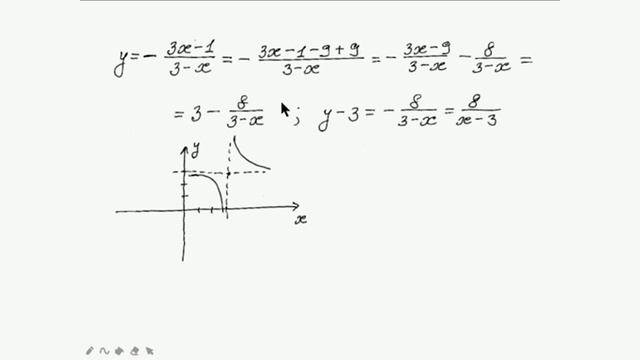 y = - \frac{3x-1}{3-x} = - \frac{3x-1-9+9}{3-x} = - \frac{3x-9}{3-x} - \frac{8}{3-x} =
= 3 - \frac{8}{3-x} ; y-3 = - \frac{8}{3-x} = \frac{8}{x-3}
y
x